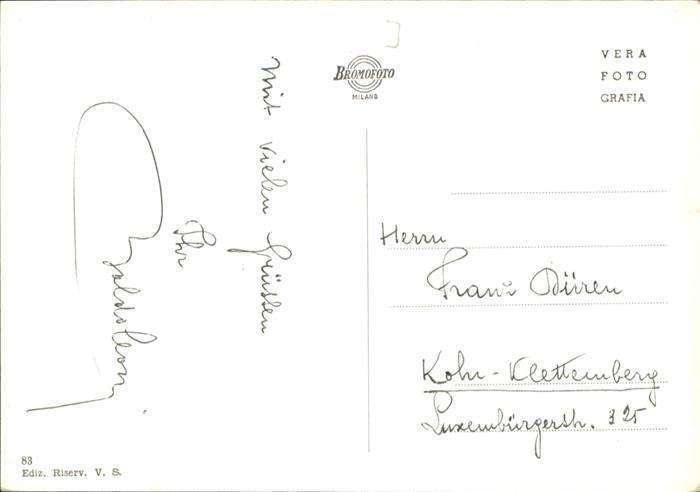 Mit vielen Grüssen
Ihr
BROMOFOTO
MILANO
VERA
FOTO
GRAFIA
Herrn
Franz Düren
Köln-Klettemberg
Luxembürgerstr. 325
83
Ediz. Riserv. V. S.